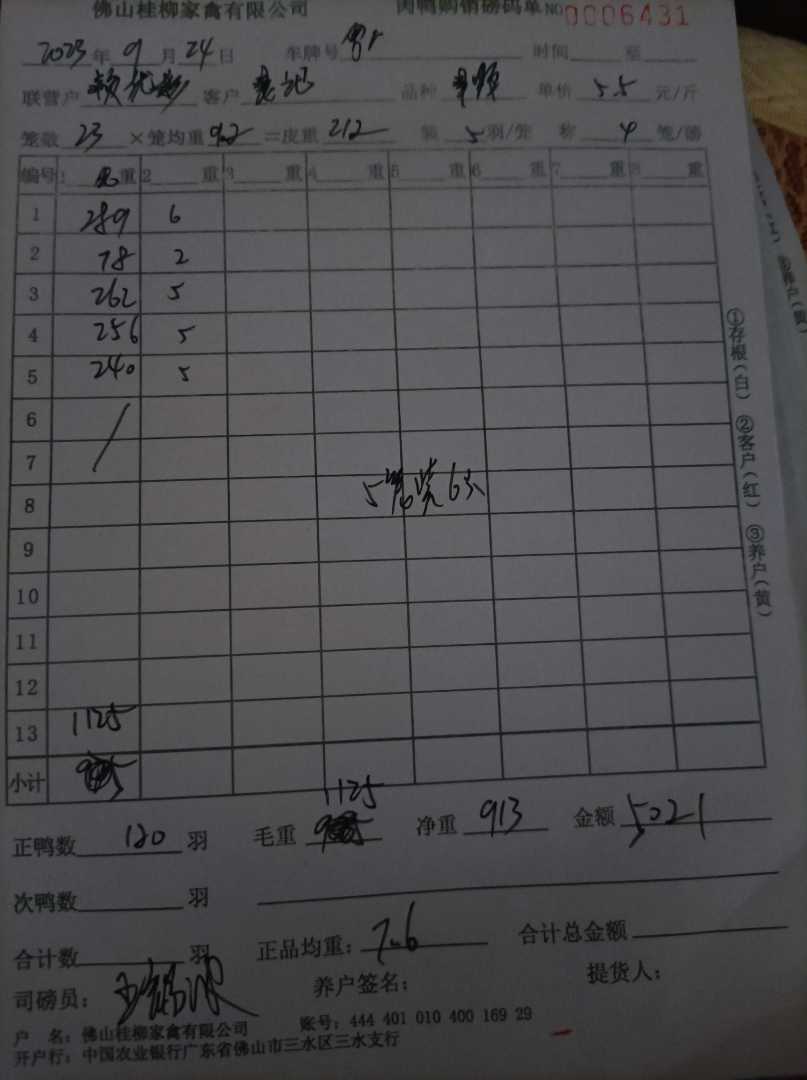 佛山桂柳家禽有限公司 肉鸭购销磅码单 NO 0006431
2023年9月24日 车牌号 时间 至
联营户 客户 品种 单价 5.5 元/斤
笼数 23 ×笼均重 9.2 =皮重 212 装 5 羽/笼 称 4 笼/磅
编号 1 毛重 2 重 3 重 4 重 5 重 6 重 7 重 8 重
1 289 6
2 78 2
3 262 5
4 256 5
5 240 5
6
7
8 5笼装6只
9
10
11
12
13 1125
小计
1125
正鸭数 120 羽 毛重 净重 913 金额 5021
次鸭数 羽
合计数 羽 正品均重: 7.6 合计总金额
司磅员: 养户签名: 提货人:
户 名: 佛山桂柳家禽有限公司 账号: 444 401 010 400 169 29
开户行: 中国农业银行广东省佛山市三水区三水支行
①存根(白) ②客户(红) ③养户(黄)